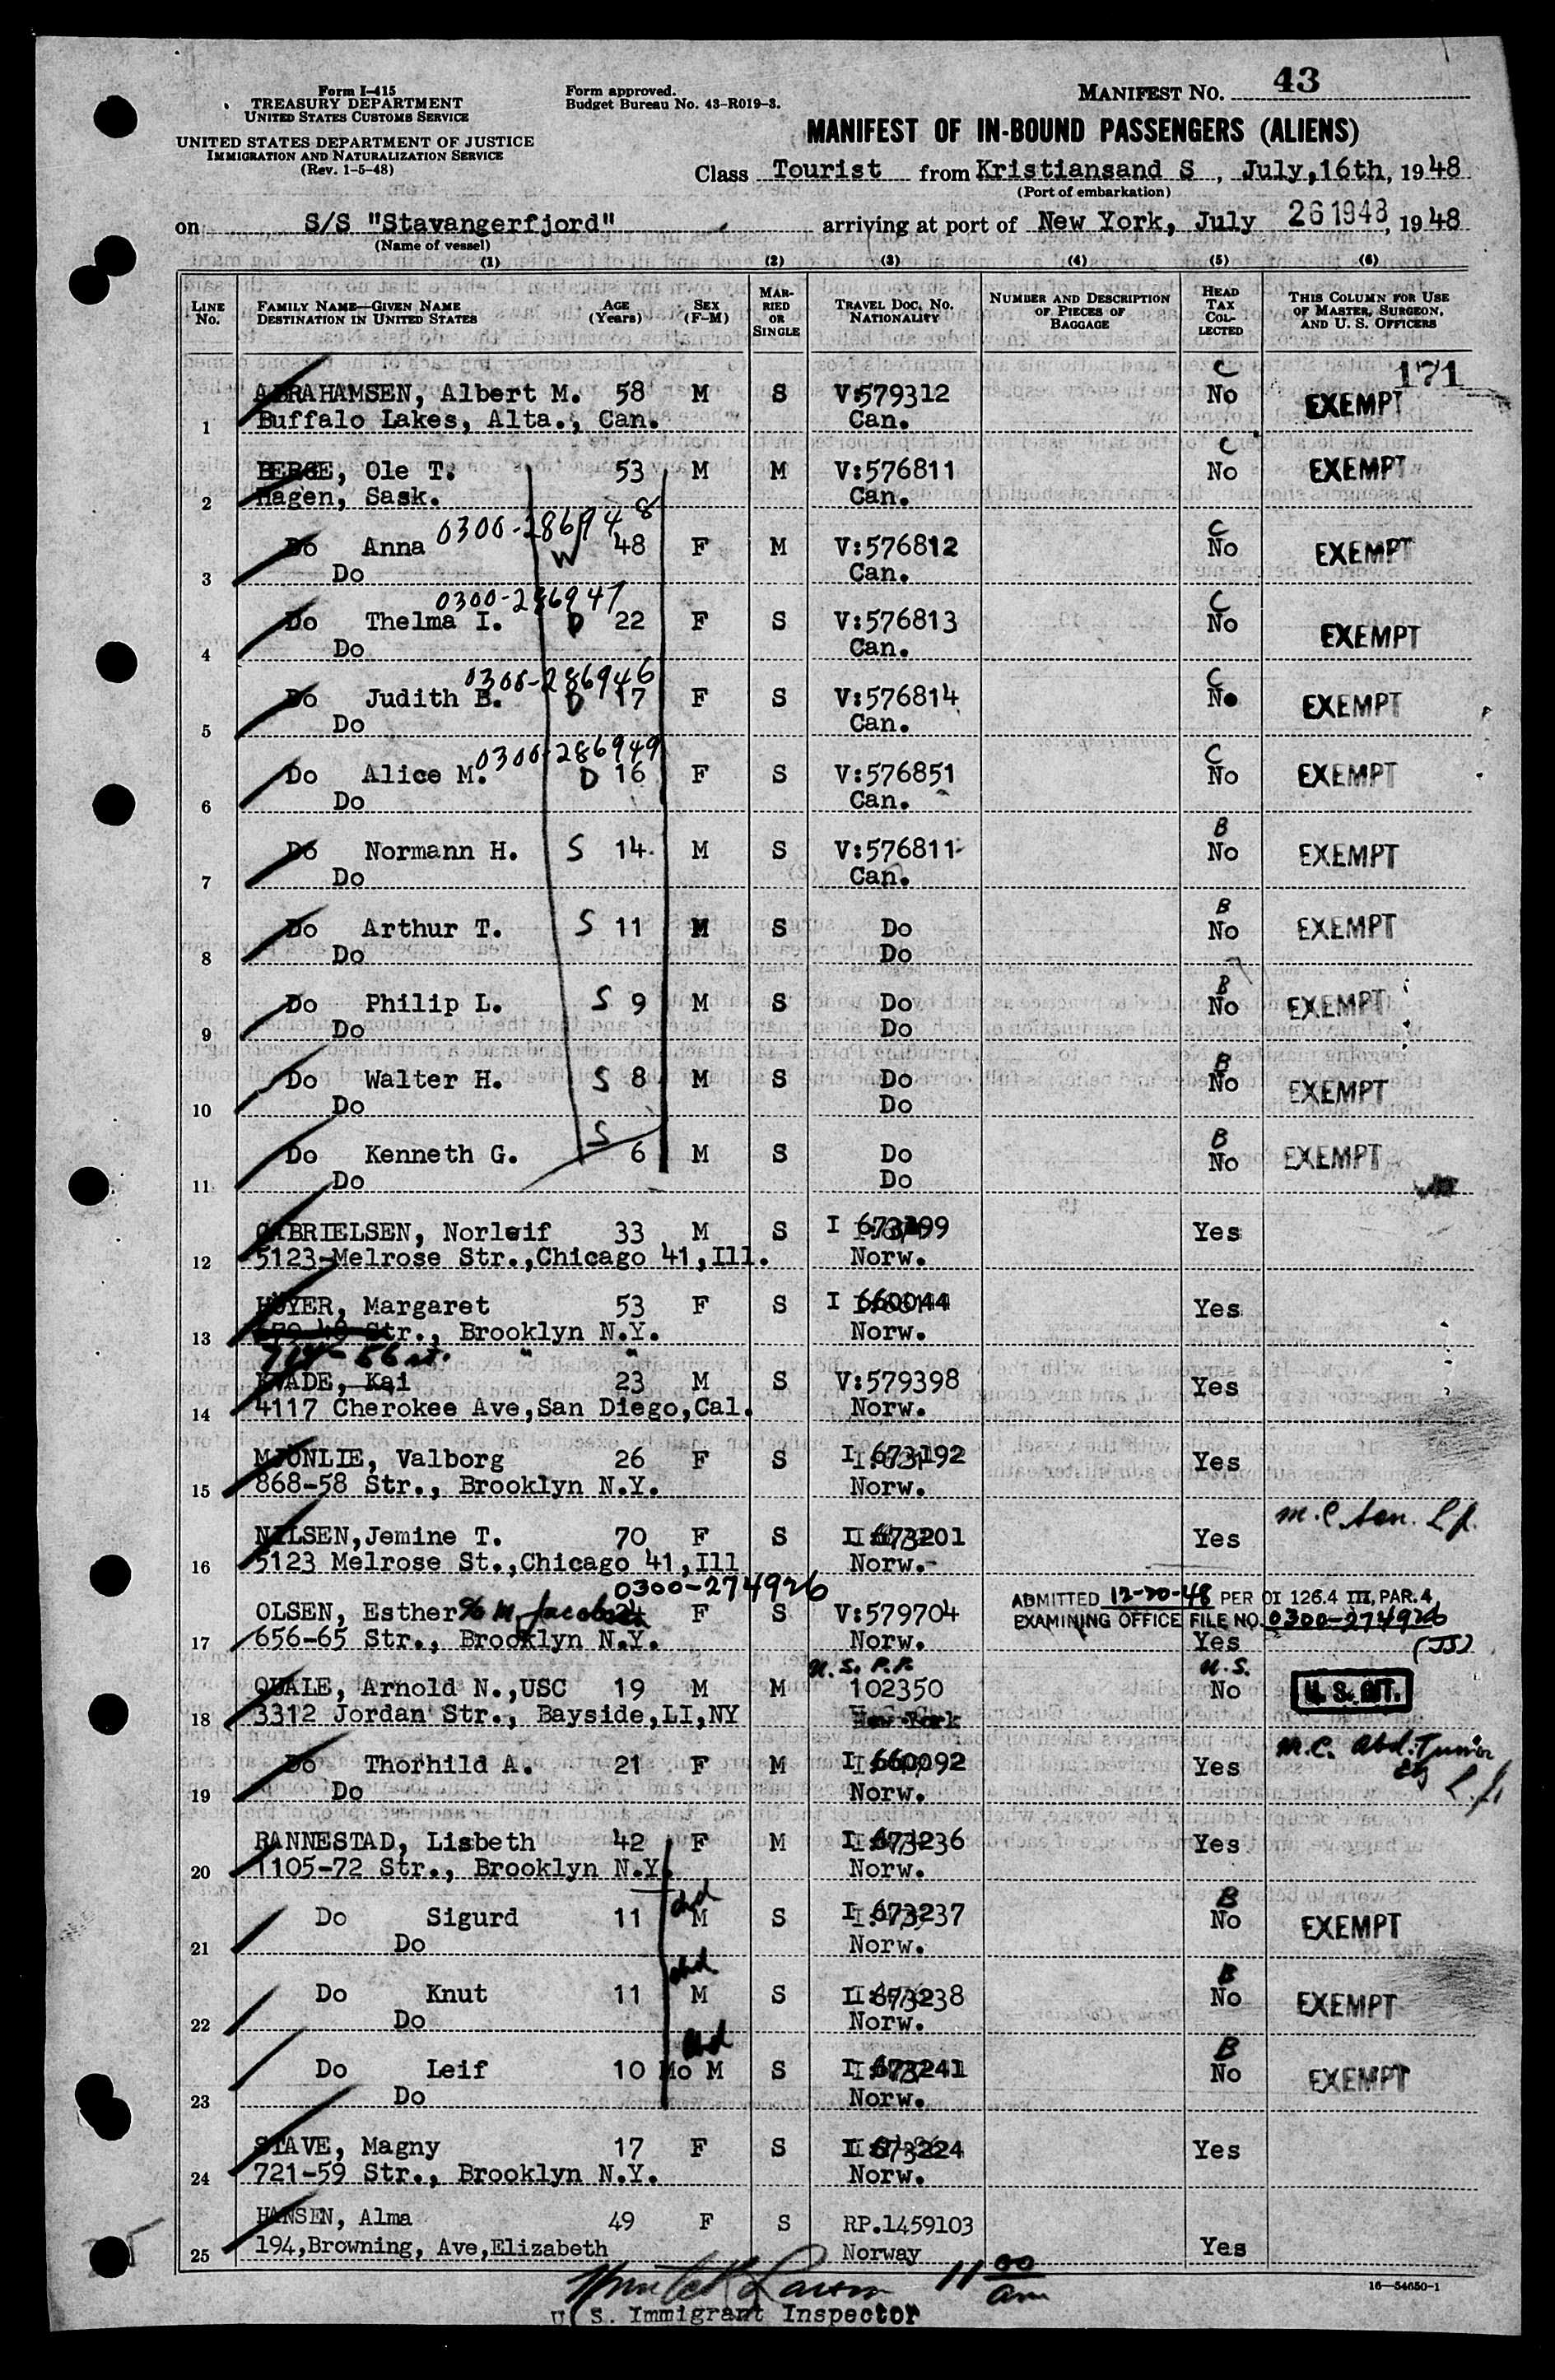 Form I-415
TREASURY DEPARTMENT
UNITED STATES CUSTOMS SERVICE
UNITED STATES DEPARTMENT OF JUSTICE
IMMIGRATION AND NATURALIZATION SERVICE
(Rev. 1-5-48)
Form approved.
Budget Bureau No. 43-R019-3.
MANIFEST NO. 43
MANIFEST OF IN-BOUND PASSENGERS (ALIENS)
Class Tourist from Kristiansand S, July,16th, 1948
(Port of embarkation)
on S/S "Stavangerfjord" arriving at port of New York, July 26 1948, 1948
(Name of vessel)
(1) (2) (3) (4) (5) (6)
LINE No. FAMILY NAME—GIVEN NAME DESTINATION IN UNITED STATES AGE (Years) SEX (F-M) MARRIED OR SINGLE TRAVEL DOC. NO. NATIONALITY NUMBER AND DESCRIPTION OF PIECES OF BAGGAGE HEAD TAX COLLECTED THIS COLUMN FOR USE OF MASTER, SURGEON, AND U. S. OFFICERS
171
C
ABRAHAMSEN, Albert M. 58 M S V:579312 No EXEMPT
1 Buffalo Lakes, Alta., Can. Can.
C
BERGE, Ole T. 53 M M V:576811 No EXEMPT
2 Hagen, Sask. Can.
0300-286948 C
Do Anna W 48 F M V:576812 No EXEMPT
3 Do Can.
0300-286947 C
Do Thelma I. D 22 F S V:576813 No EXEMPT
4 Do Can.
0300-286946 C
Do Judith B. D 17 F S V:576814 No EXEMPT
5 Do Can.
0300-286949 C
Do Alice M. D 16 F S V:576851 No EXEMPT
6 Do Can.
B
Do Normann H. S 14 M S V:576811 No EXEMPT
7 Do Can.
B
Do Arthur T. S 11 M S Do No EXEMPT
8 Do Do
B
Do Philip L. S 9 M S Do No EXEMPT
9 Do Do
B
Do Walter H. S 8 M S Do No EXEMPT
10 Do Do
S B
Do Kenneth G. 6 M S Do No EXEMPT
11 Do Do
GABRIELSEN, Norleif 33 M S I 673199 Yes
12 5123-Melrose Str.,Chicago 41,Ill. Norw.
HÖYER, Margaret 53 F S I 660044 Yes
13 Str., Brooklyn N.Y. Norw.
56 st. " "
KVADE, Kai 23 M S V:579398 Yes
14 4117 Cherokee Ave,San Diego,Cal. Norw.
MJÖNLIE, Valborg 26 F S I 673192 Yes
15 868-58 Str., Brooklyn N.Y. Norw.
M.C. Sen. L.f.
NILSEN,Jemine T. 70 F S I 673201 Yes
16 5123 Melrose St.,Chicago 41,Ill Norw.
0300-274926 ADMITTED 12-20-48 PER OI 126.4 III, PAR. 4
OLSEN, Esther c/o M. Jacobsen 24 F S V:579704 EXAMINING OFFICE FILE NO. 0300-274926
17 656-65 Str., Brooklyn N.Y. Norw. Yes (JS)
U.S. P.P. U.S.
QUALE, Arnold N.,USC 19 M M 102350 No U. S. CIT.
18 3312 Jordan Str., Bayside,LI,NY New York
M.C. Abd. Tumor
Do Thorhild A. 21 F M I 660092 Yes L.f.
19 Do Norw.
RANNESTAD, Lisbeth 42 F M I 673236 Yes
20 1105-72 Str., Brooklyn N.Y. Norw.
B
Do Sigurd 11 M S I 673237 No EXEMPT
21 Do Norw.
B
Do Knut 11 M S I 673238 No EXEMPT
22 Do Norw.
B
Do Leif 10 Mo M S I 673241 No EXEMPT
23 Do Norw.
STAVE, Magny 17 F S I 673224 Yes
24 721-59 Str., Brooklyn N.Y. Norw.
HANSEN, Alma 49 F S RP.1459103
25 194,Browning, Ave,Elizabeth Norway Yes
Larson 11 00 am
16—54650-1
U. S. Immigrant Inspector